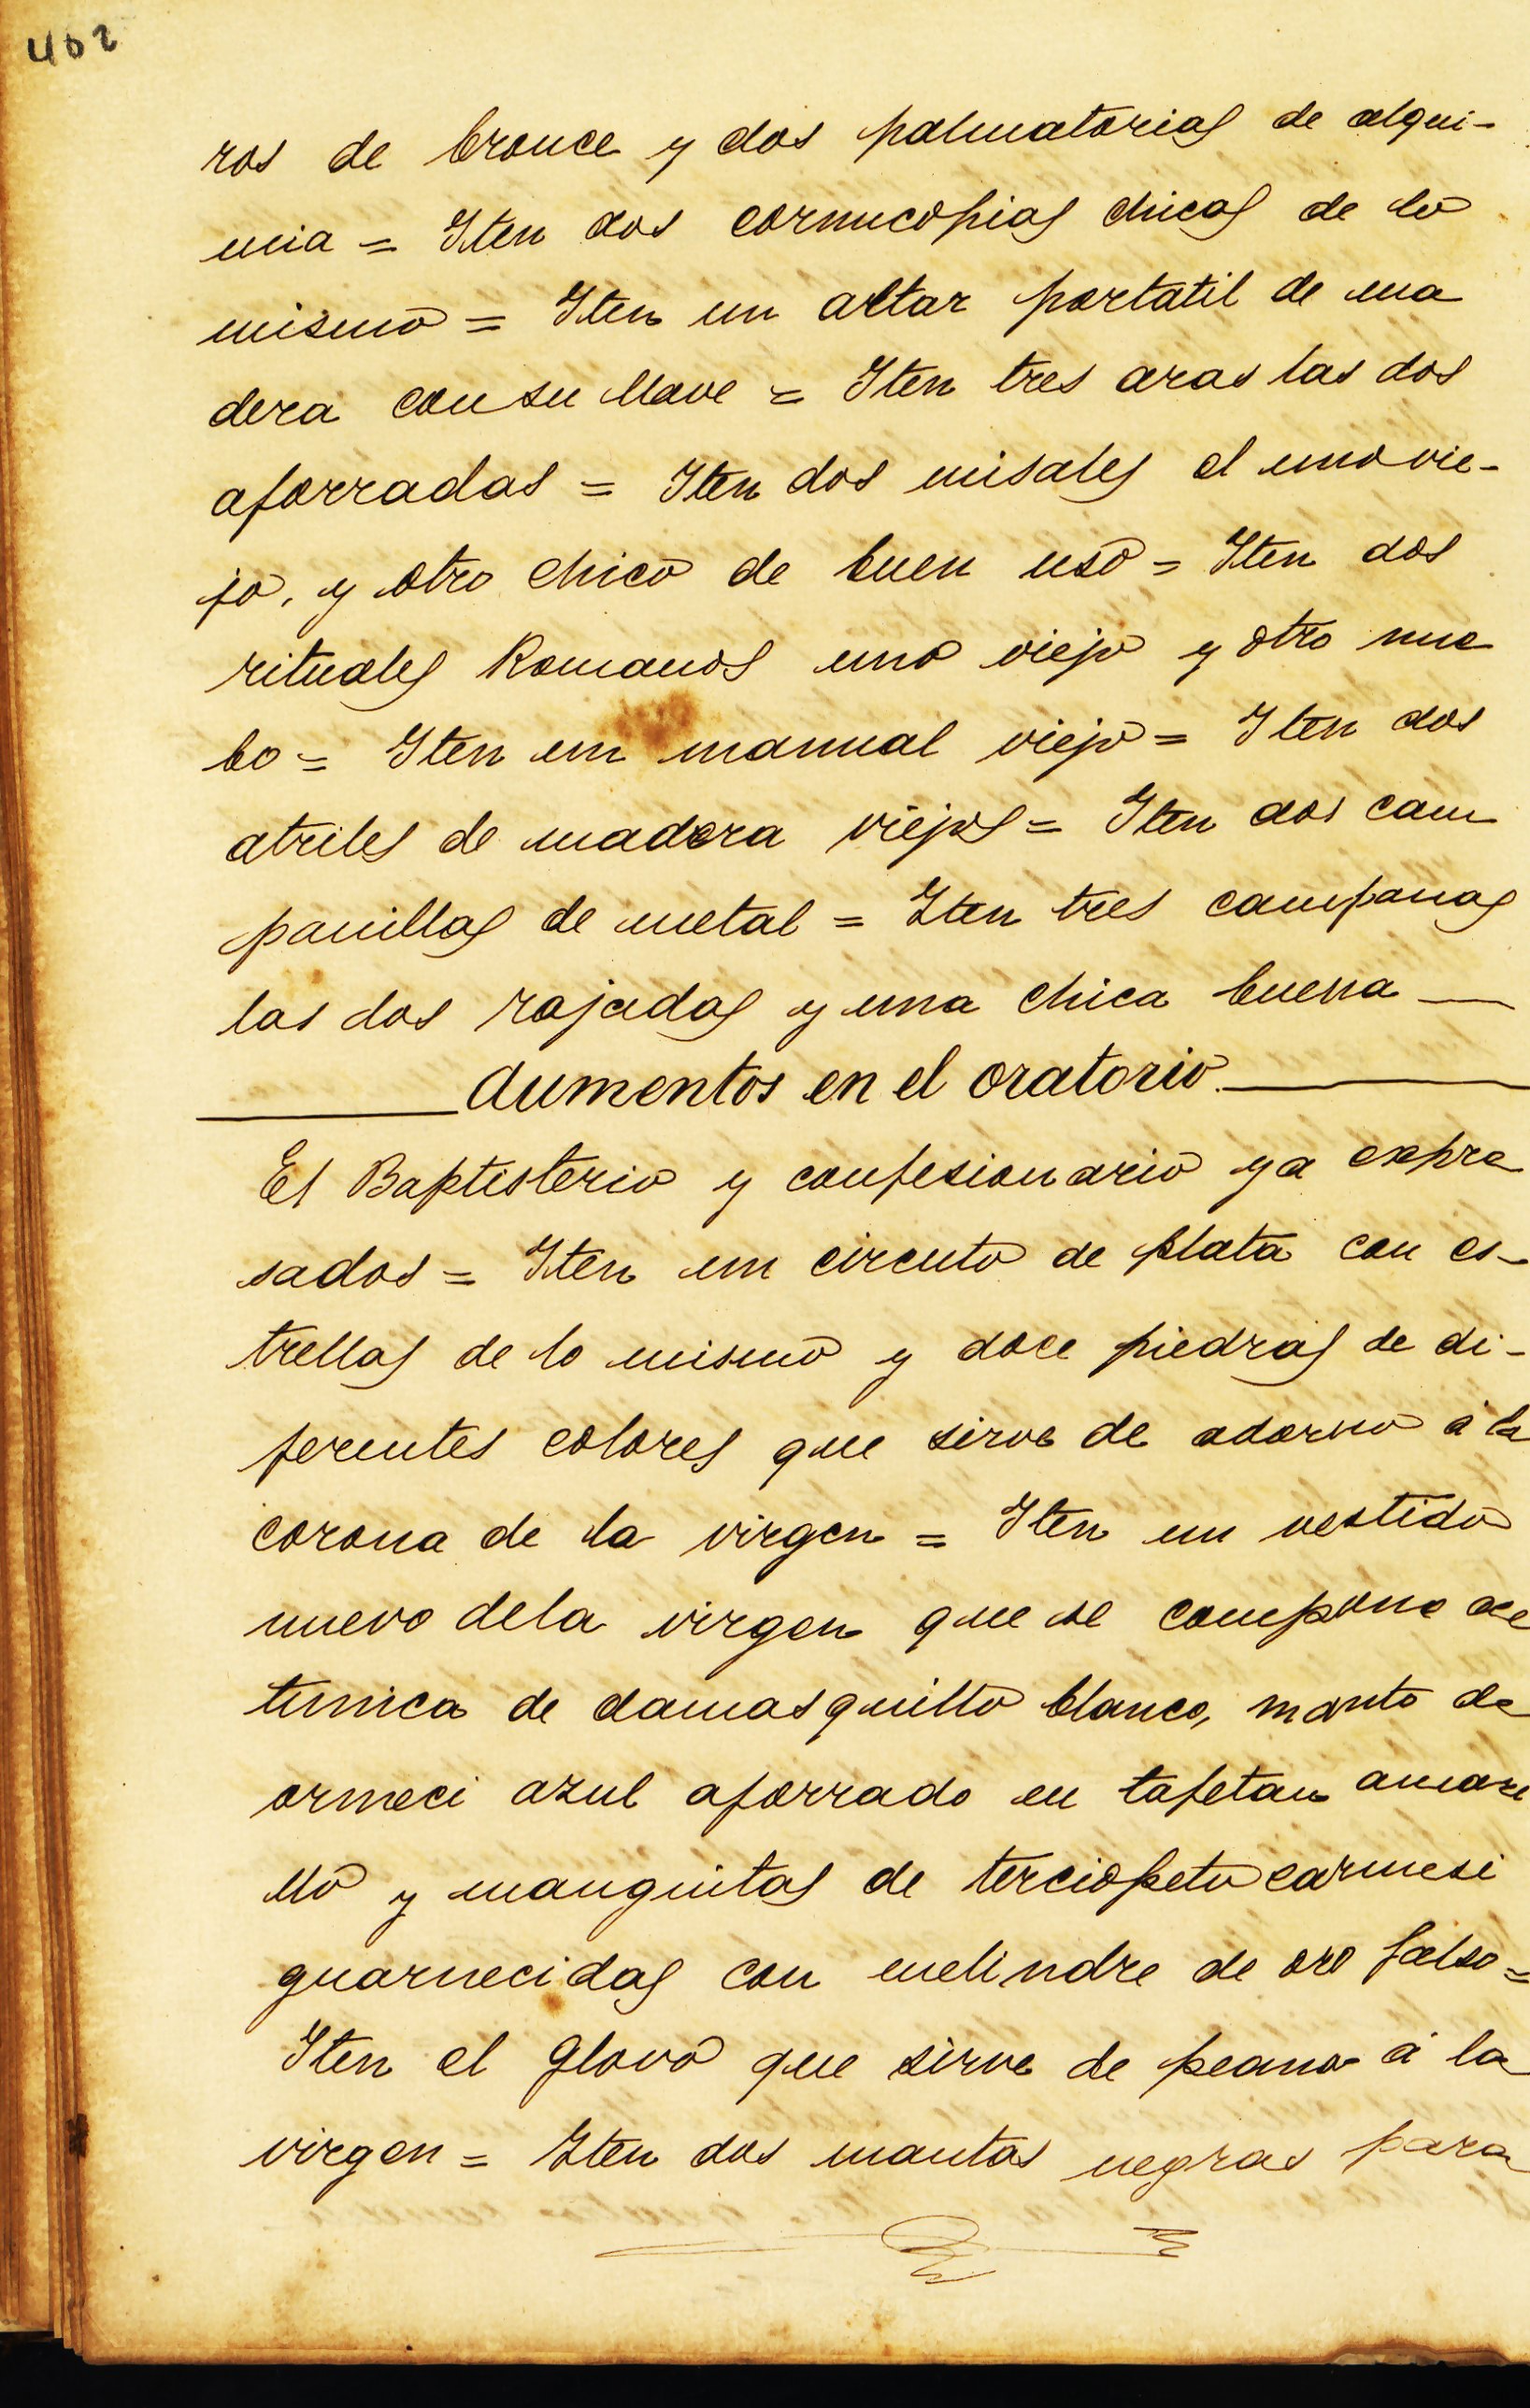 462
ros de bronce y dos palmatorias de alqui-
mia = Iten dos cornucopias chicas de lo
mismo = Iten un altar portatil de ma
dera con su llave = Iten tres aras las dos
aforradas = Iten dos misales el uno vie-
jo, y otro chico de buen uso = Iten dos
rituales Romanos uno viejo y otro nue
bo = Iten un manual viejo = Iten dos
atriles de madera viejos = Iten dos cam
panillas de metal = Iten tres campanas
las dos rajadas y una chica buena —
Aumentos en el oratorio.
El Baptisterio y confesionario ya expre
sados = Iten un circulo de plata con es-
trellas de lo mismo y doce piedras de di-
ferentes colores que sirve de adorno á la
corona de la virgen = Iten un vestido
nuevo dela virgen que se compone de
tunica de damasquillo blanco, manto de
ormeci azul aforrado en tafetan amari
llo y manguitas de terciopelo carmesi
guarnecidas con melindre de oro falso =
Iten el glovo que sirve de peana á la
virgen = Iten dos mantas negras para